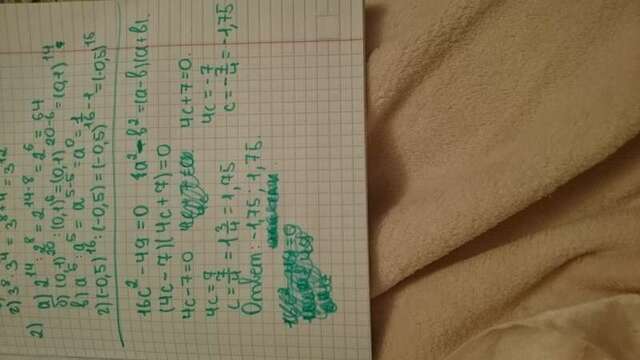 г) 3⁸ · 3⁴ = 3⁸⁺⁴ = 3¹²
2) а) 2¹⁴ : 2⁸ = 2¹⁴⁻⁸ = 2⁶ = 64
б) (0,1)²⁰ : (0,1)⁶ = (0,1)²⁰⁻⁶ = (0,1)¹⁴
в) a⁵ : a⁵ = a⁵⁻⁵ = a⁰ = 1
г) (-0,5)¹⁶ : (-0,5) = (-0,5)¹⁶⁻¹ = (-0,5)¹⁵
16c² - 49 = 0 a² - b² = (a-b)(a+b)
(4c - 7)(4c + 7) = 0
4c - 7 = 0 4c + 7 = 0
4c = 7 4c = -7
c = 7/4 = 1 3/4 = 1,75 c = -7/4 = -1,75
Ответ: -1,75; 1,75.